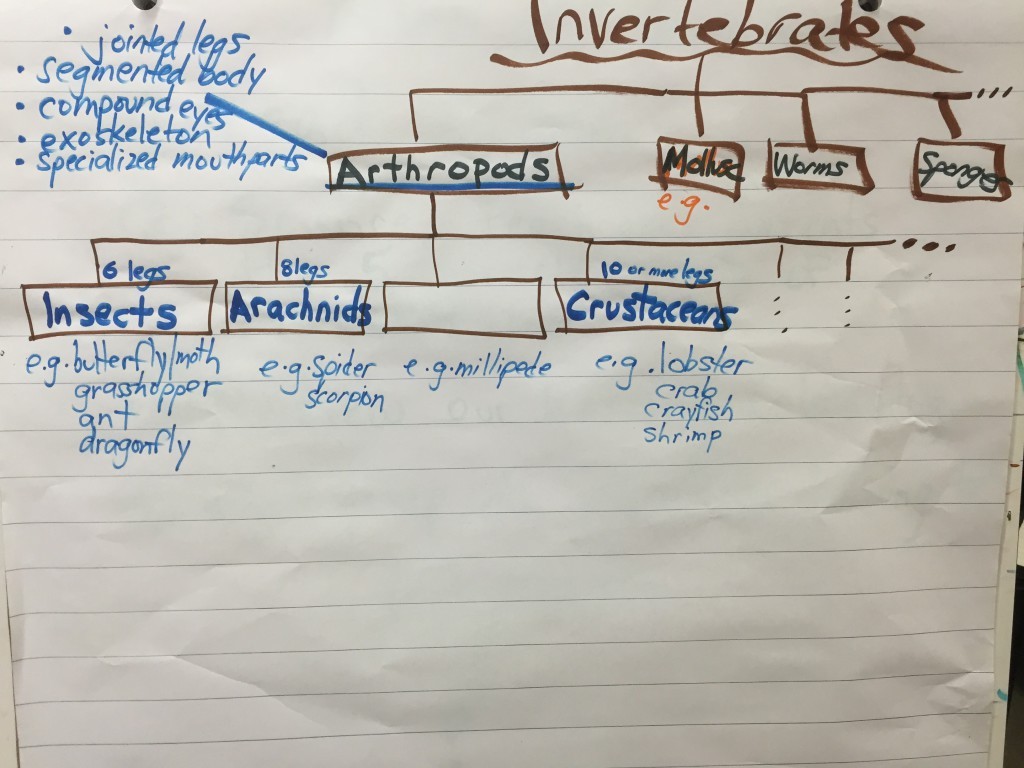 Invertebrates
• joined legs
• segmented body
• compound eyes
• exoskeleton
• specialized mouthparts
...
Arthropods
Worms
e.g.
...
6 legs
8 legs
10 or more legs
Insects
Arachnids
Crustaceans
e.g. butterfly/moth
grasshopper
ant
dragonfly
e.g. Spider
scorpion
e.g. millipede
e.g. lobster
crab
crayfish
shrimp